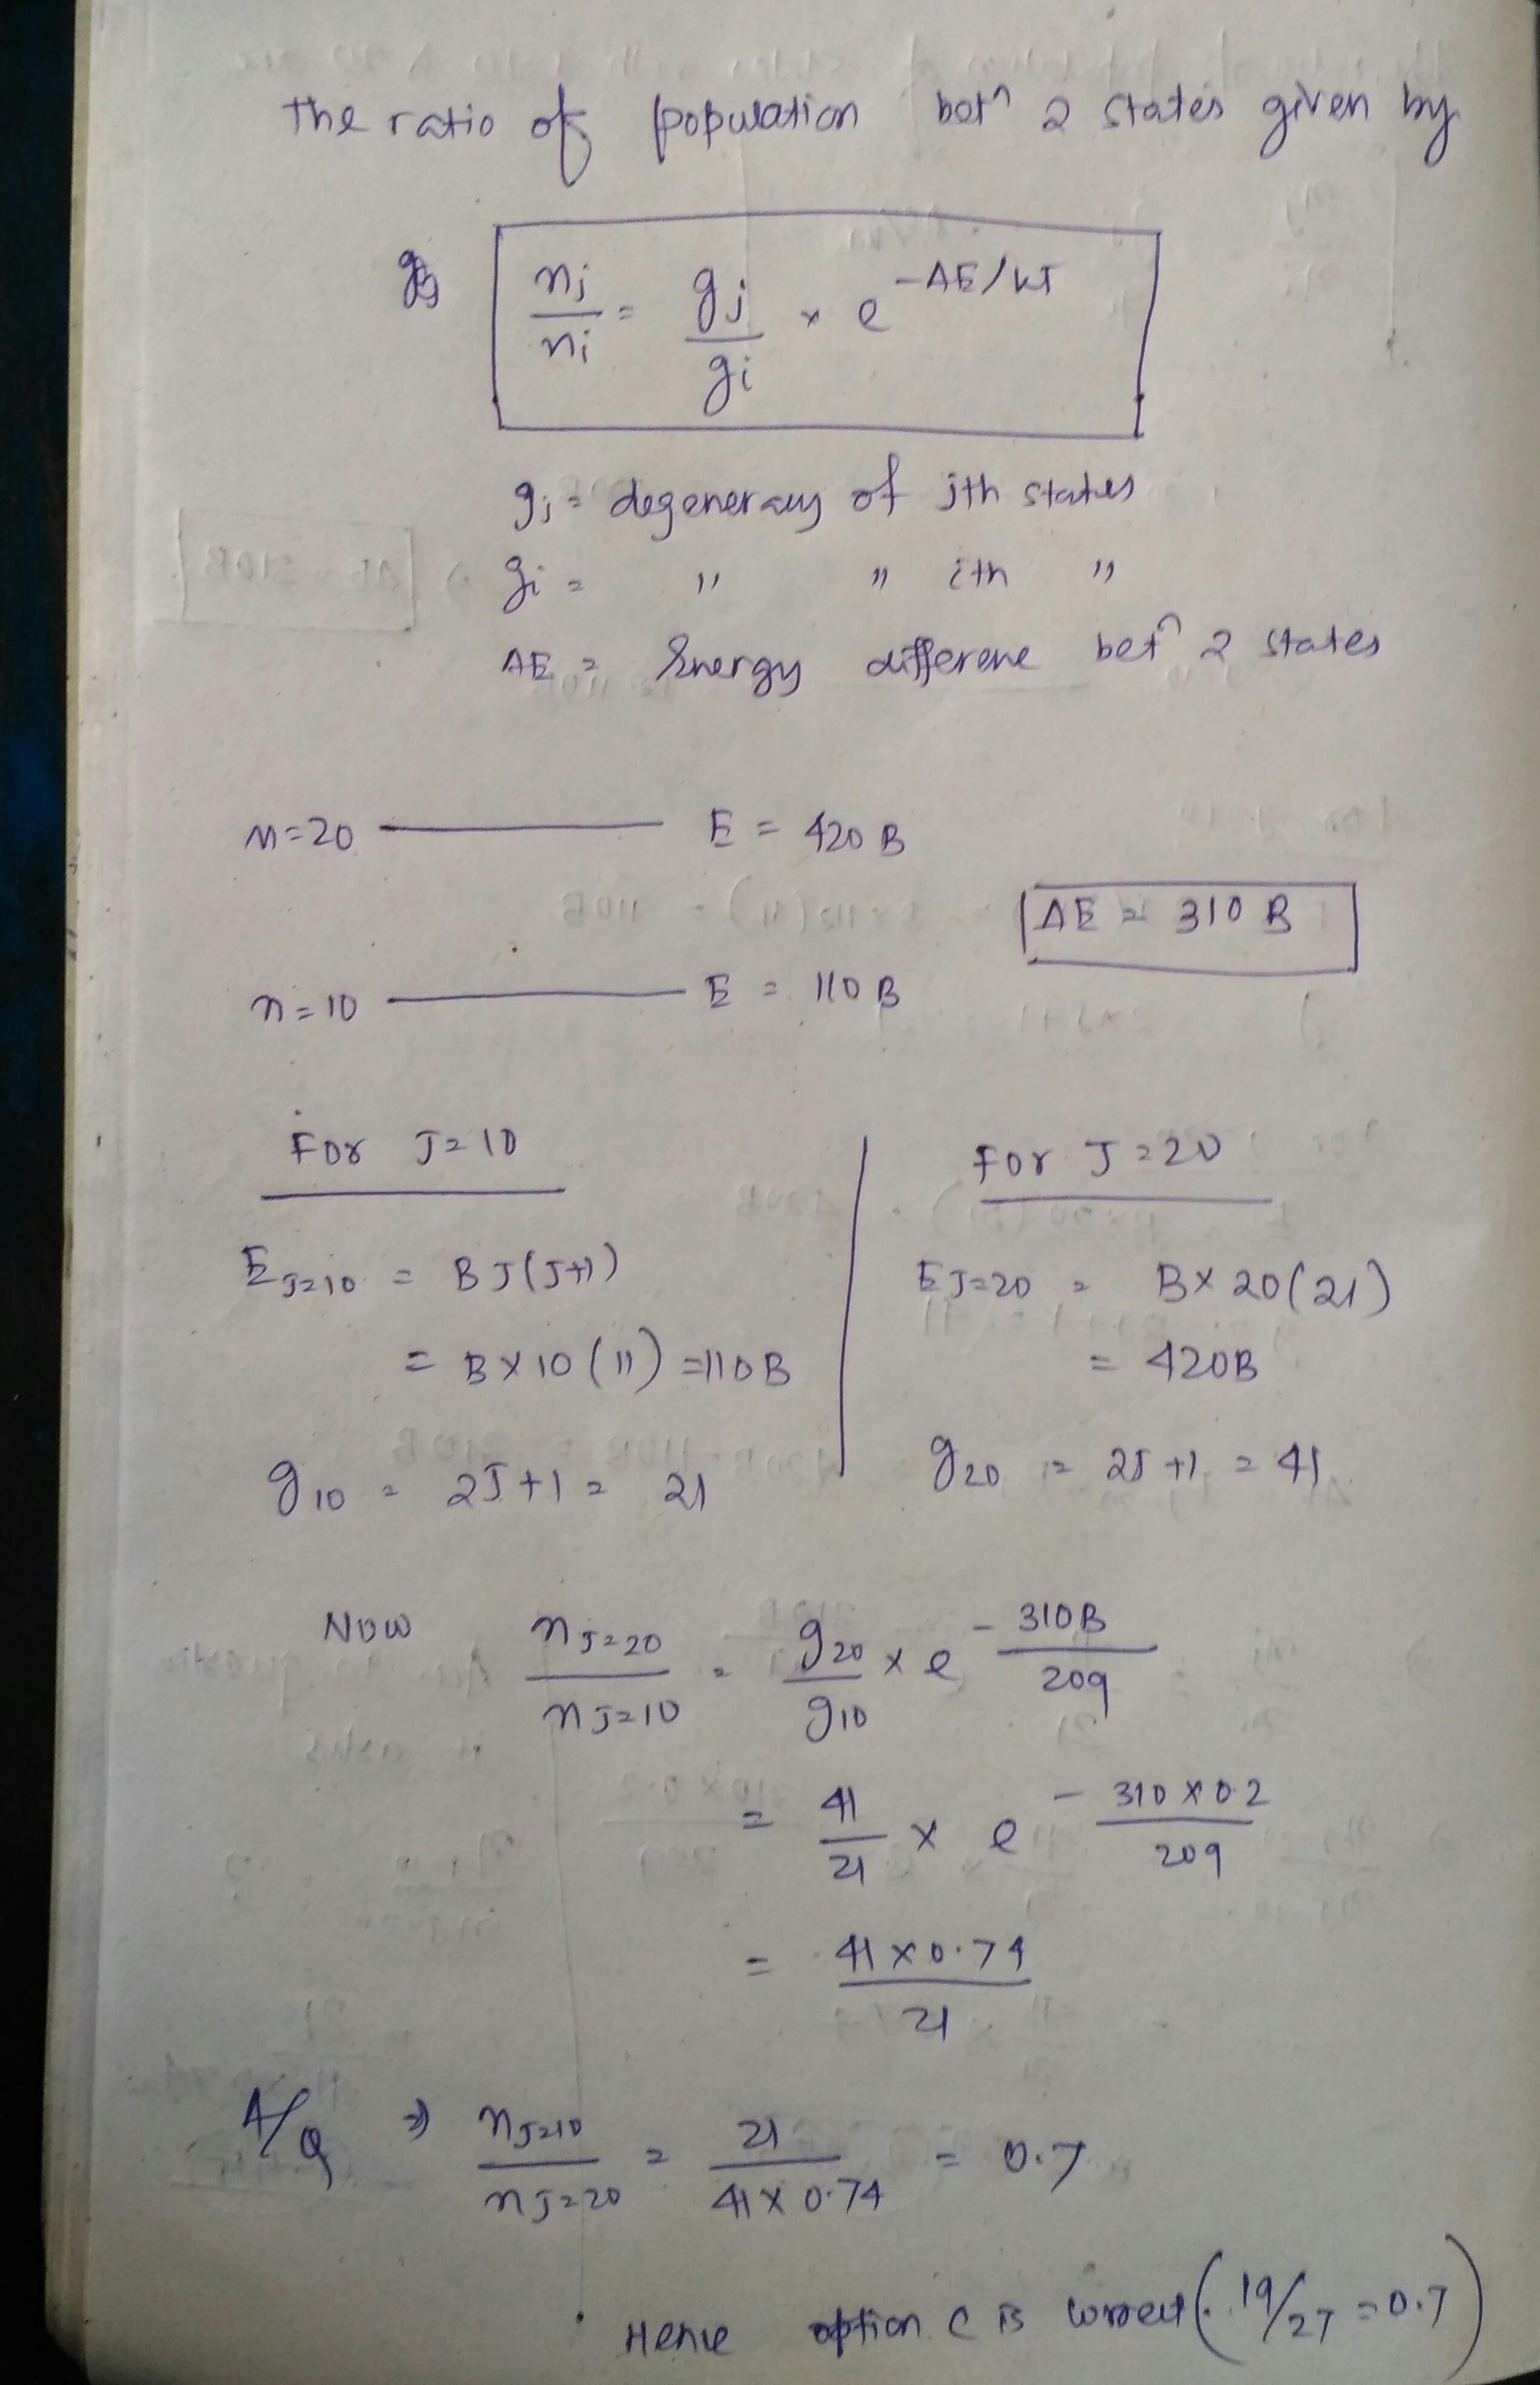 The ratio of population betⁿ 2 states given by
nj/ni = gj/gi × e^-ΔE/kT
gj = degeneracy of jth states
gi = " " ith "
ΔE = Energy differene betⁿ 2 states
n=20 E = 420 B
ΔE = 310 B
n=10 E = 110 B
For J=10
E J=10 = BJ(J+1)
= B×10(11) =110B
g10 = 2J+1 = 21
For J=20
E J=20 = B×20(21)
= 420B
g20 = 2J+1 = 41
Now nJ=20/nJ=10 = g20/g10 × e^-310B/209
= 41/21 × e^-310×0.2/209
= 41×0.74/21
A/Q ⇒ nJ=10/nJ=20 = 21/41×0.74 = 0.7
Hence option C is correct (∵ 19/27 = 0.7)